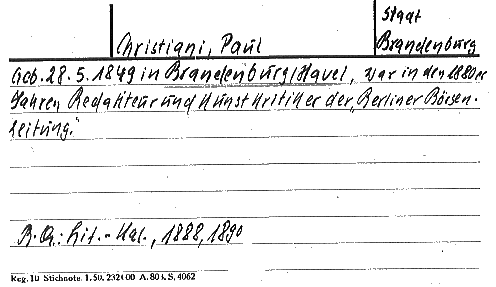 Stadt
Christiani, Paul
Brandenburg
Geb. 28.5.1849 in Brandenburg/Havel, war in den 1880er
Jahren Redakteur und Kunstkritiker der „Berliner Börsen-
zeitung."
B.Q.: Lit.-Kal., 1888, 1890
Reg. 10 Stichnote. 1. 50. 232400 A. 804. S. 4062